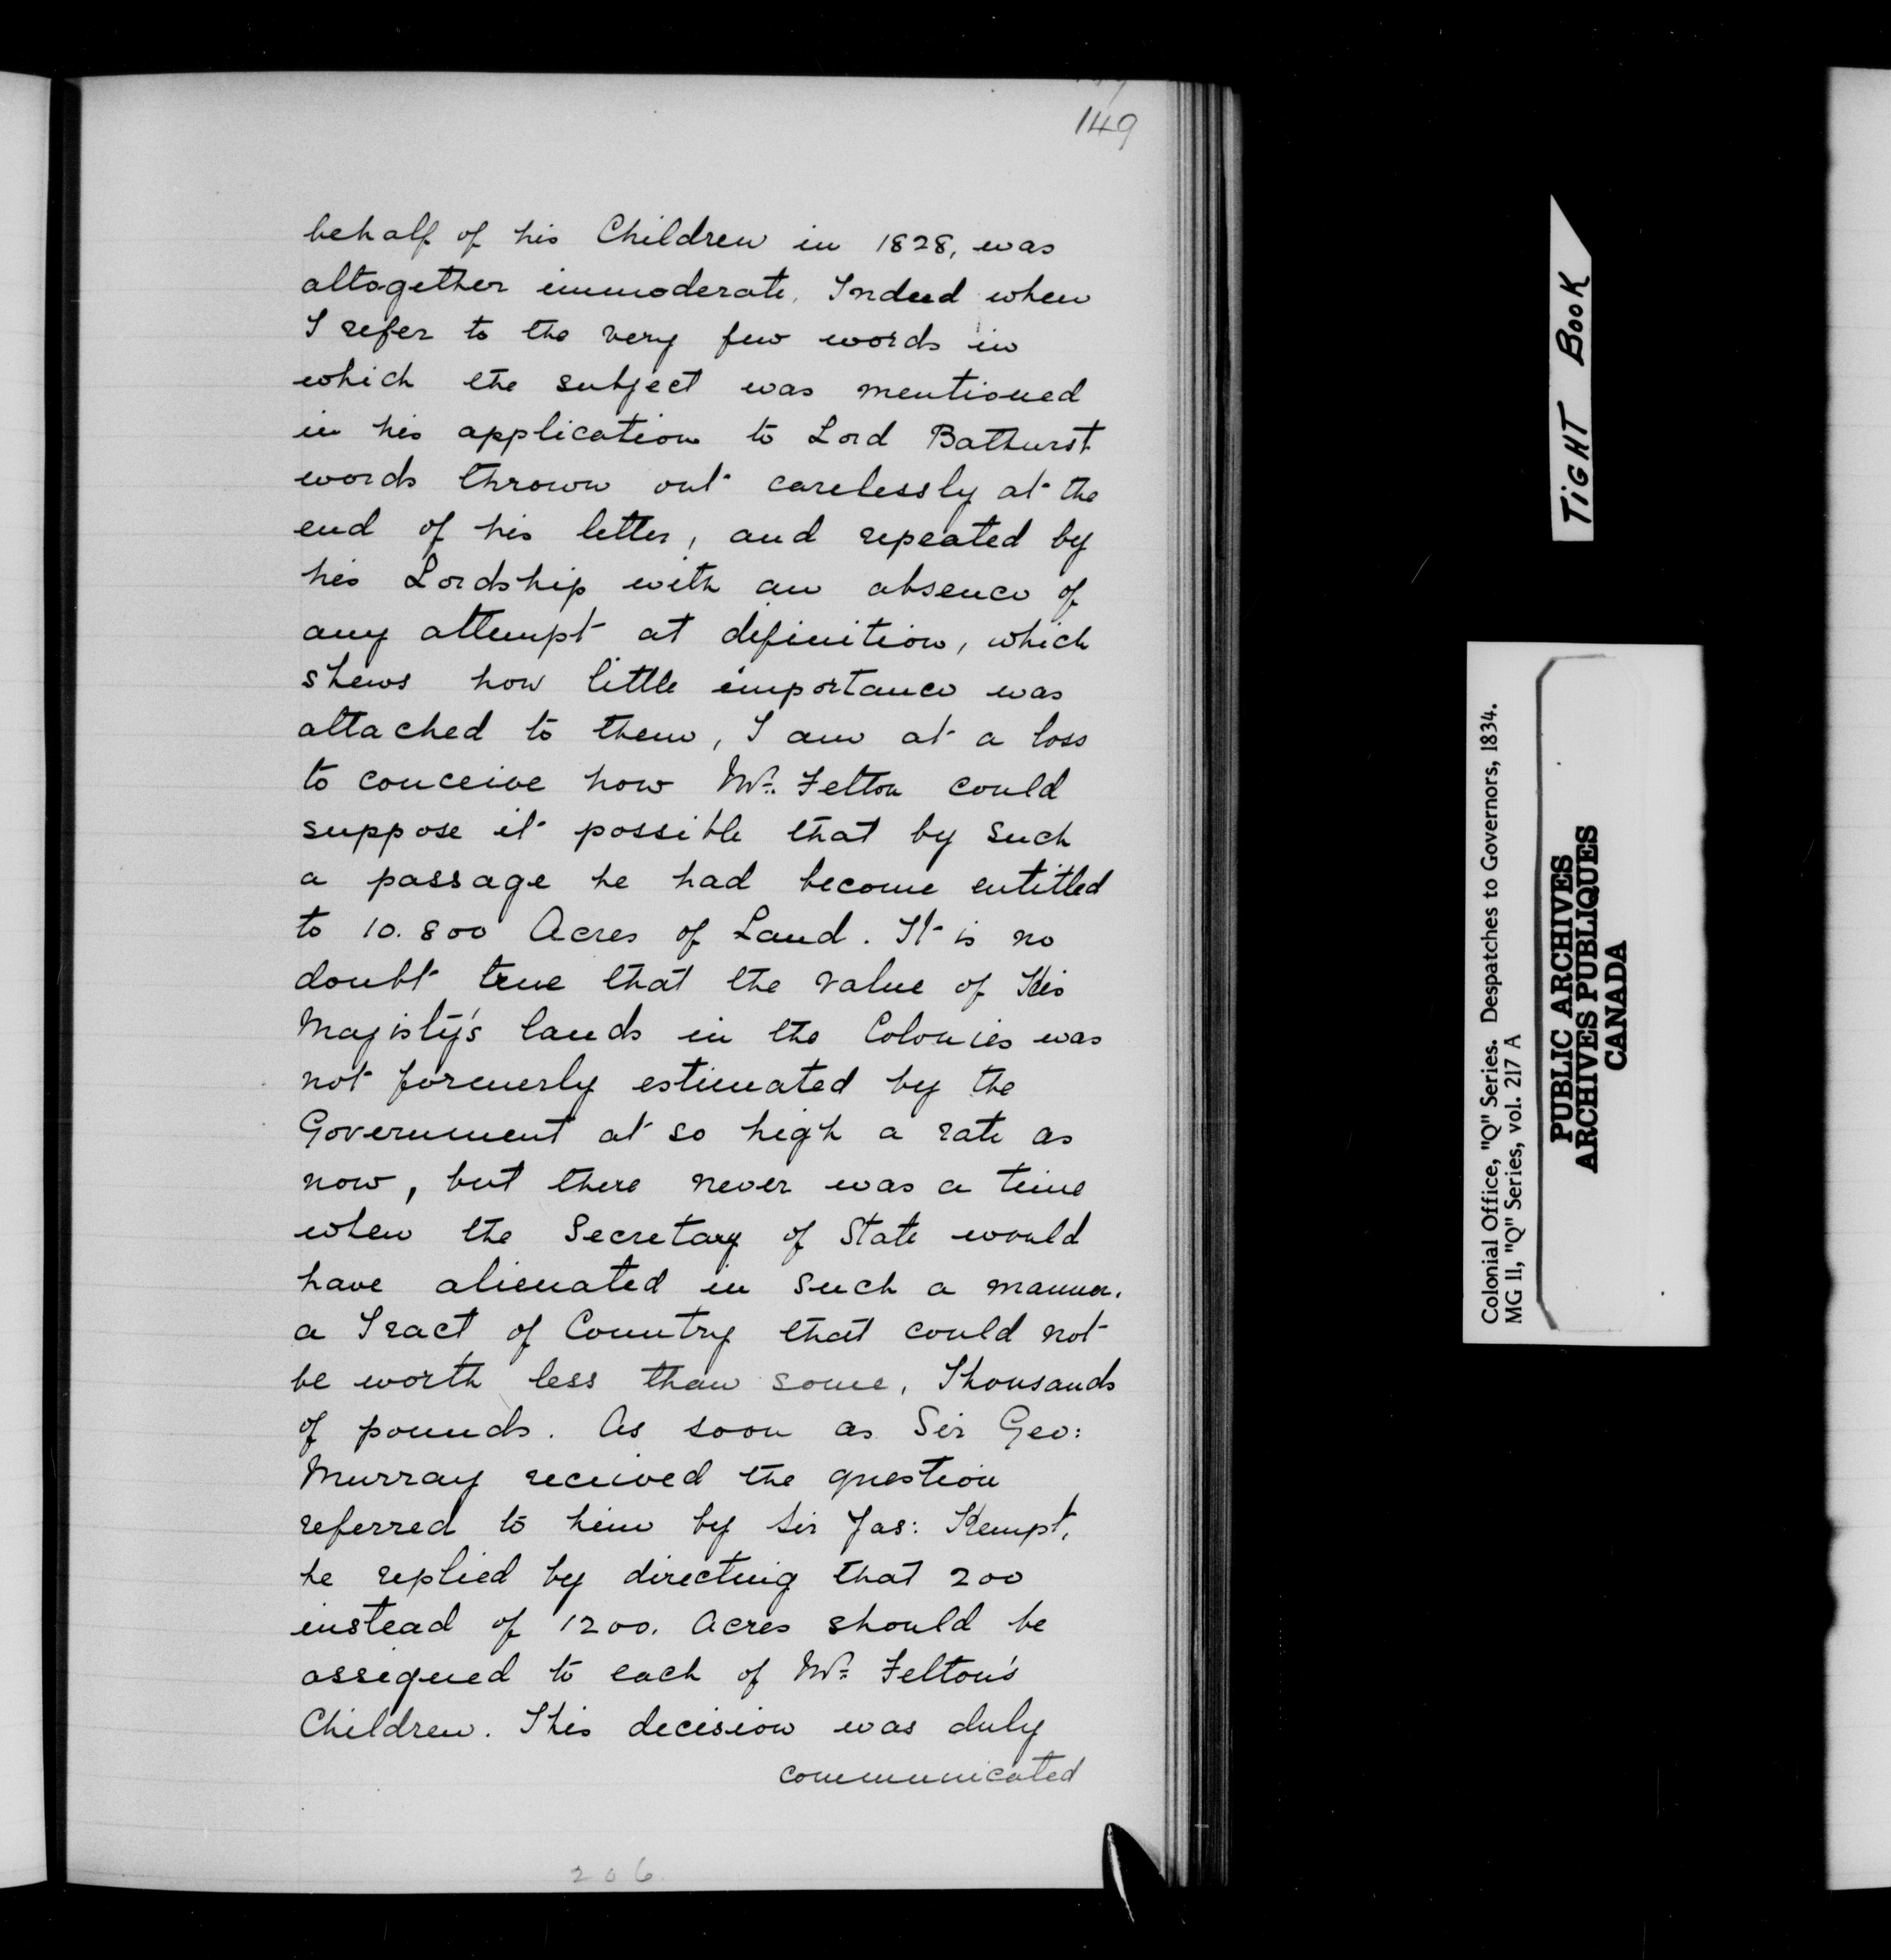 149
behalf of his Children in 1828, was
altogether immoderate. Indeed when
I refer to the very few words in
which the subject was mentioned
in his application to Lord Bathurst
words thrown out carelessly at the
end of his letter, and repeated by
his Lordship with an absence of
any attempt at definition, which
shews how little importance was
attached to them, I am at a loss
to conceive how Mr. Felton could
suppose it possible that by such
a passage he had become entitled
to 10.800 Acres of Land. It is no
doubt true that the value of His
Majisty's lands in the Colonies was
not formerly estimated by the
Government at so high a rate as
now, but there never was a time
when the Secretary of State would
have alienated in such a manner.
a Tract of Country that could not
be worth less than some, Thousands
of pounds. As soon as Sir Geo:
Murray received the question
referred to him by Sir Jas: Kempt,
he replied by directing that 200
instead of 1200. Acres should be
assigned to each of Mr. Felton's
Children. This decision was duly
communicated
206
TIGHT BOOK
Colonial Office, "Q" Series. Despatches to Governors, 1834.
MG II, "Q" Series, vol. 217 A
PUBLIC ARCHIVES
ARCHIVES PUBLIQUES
CANADA